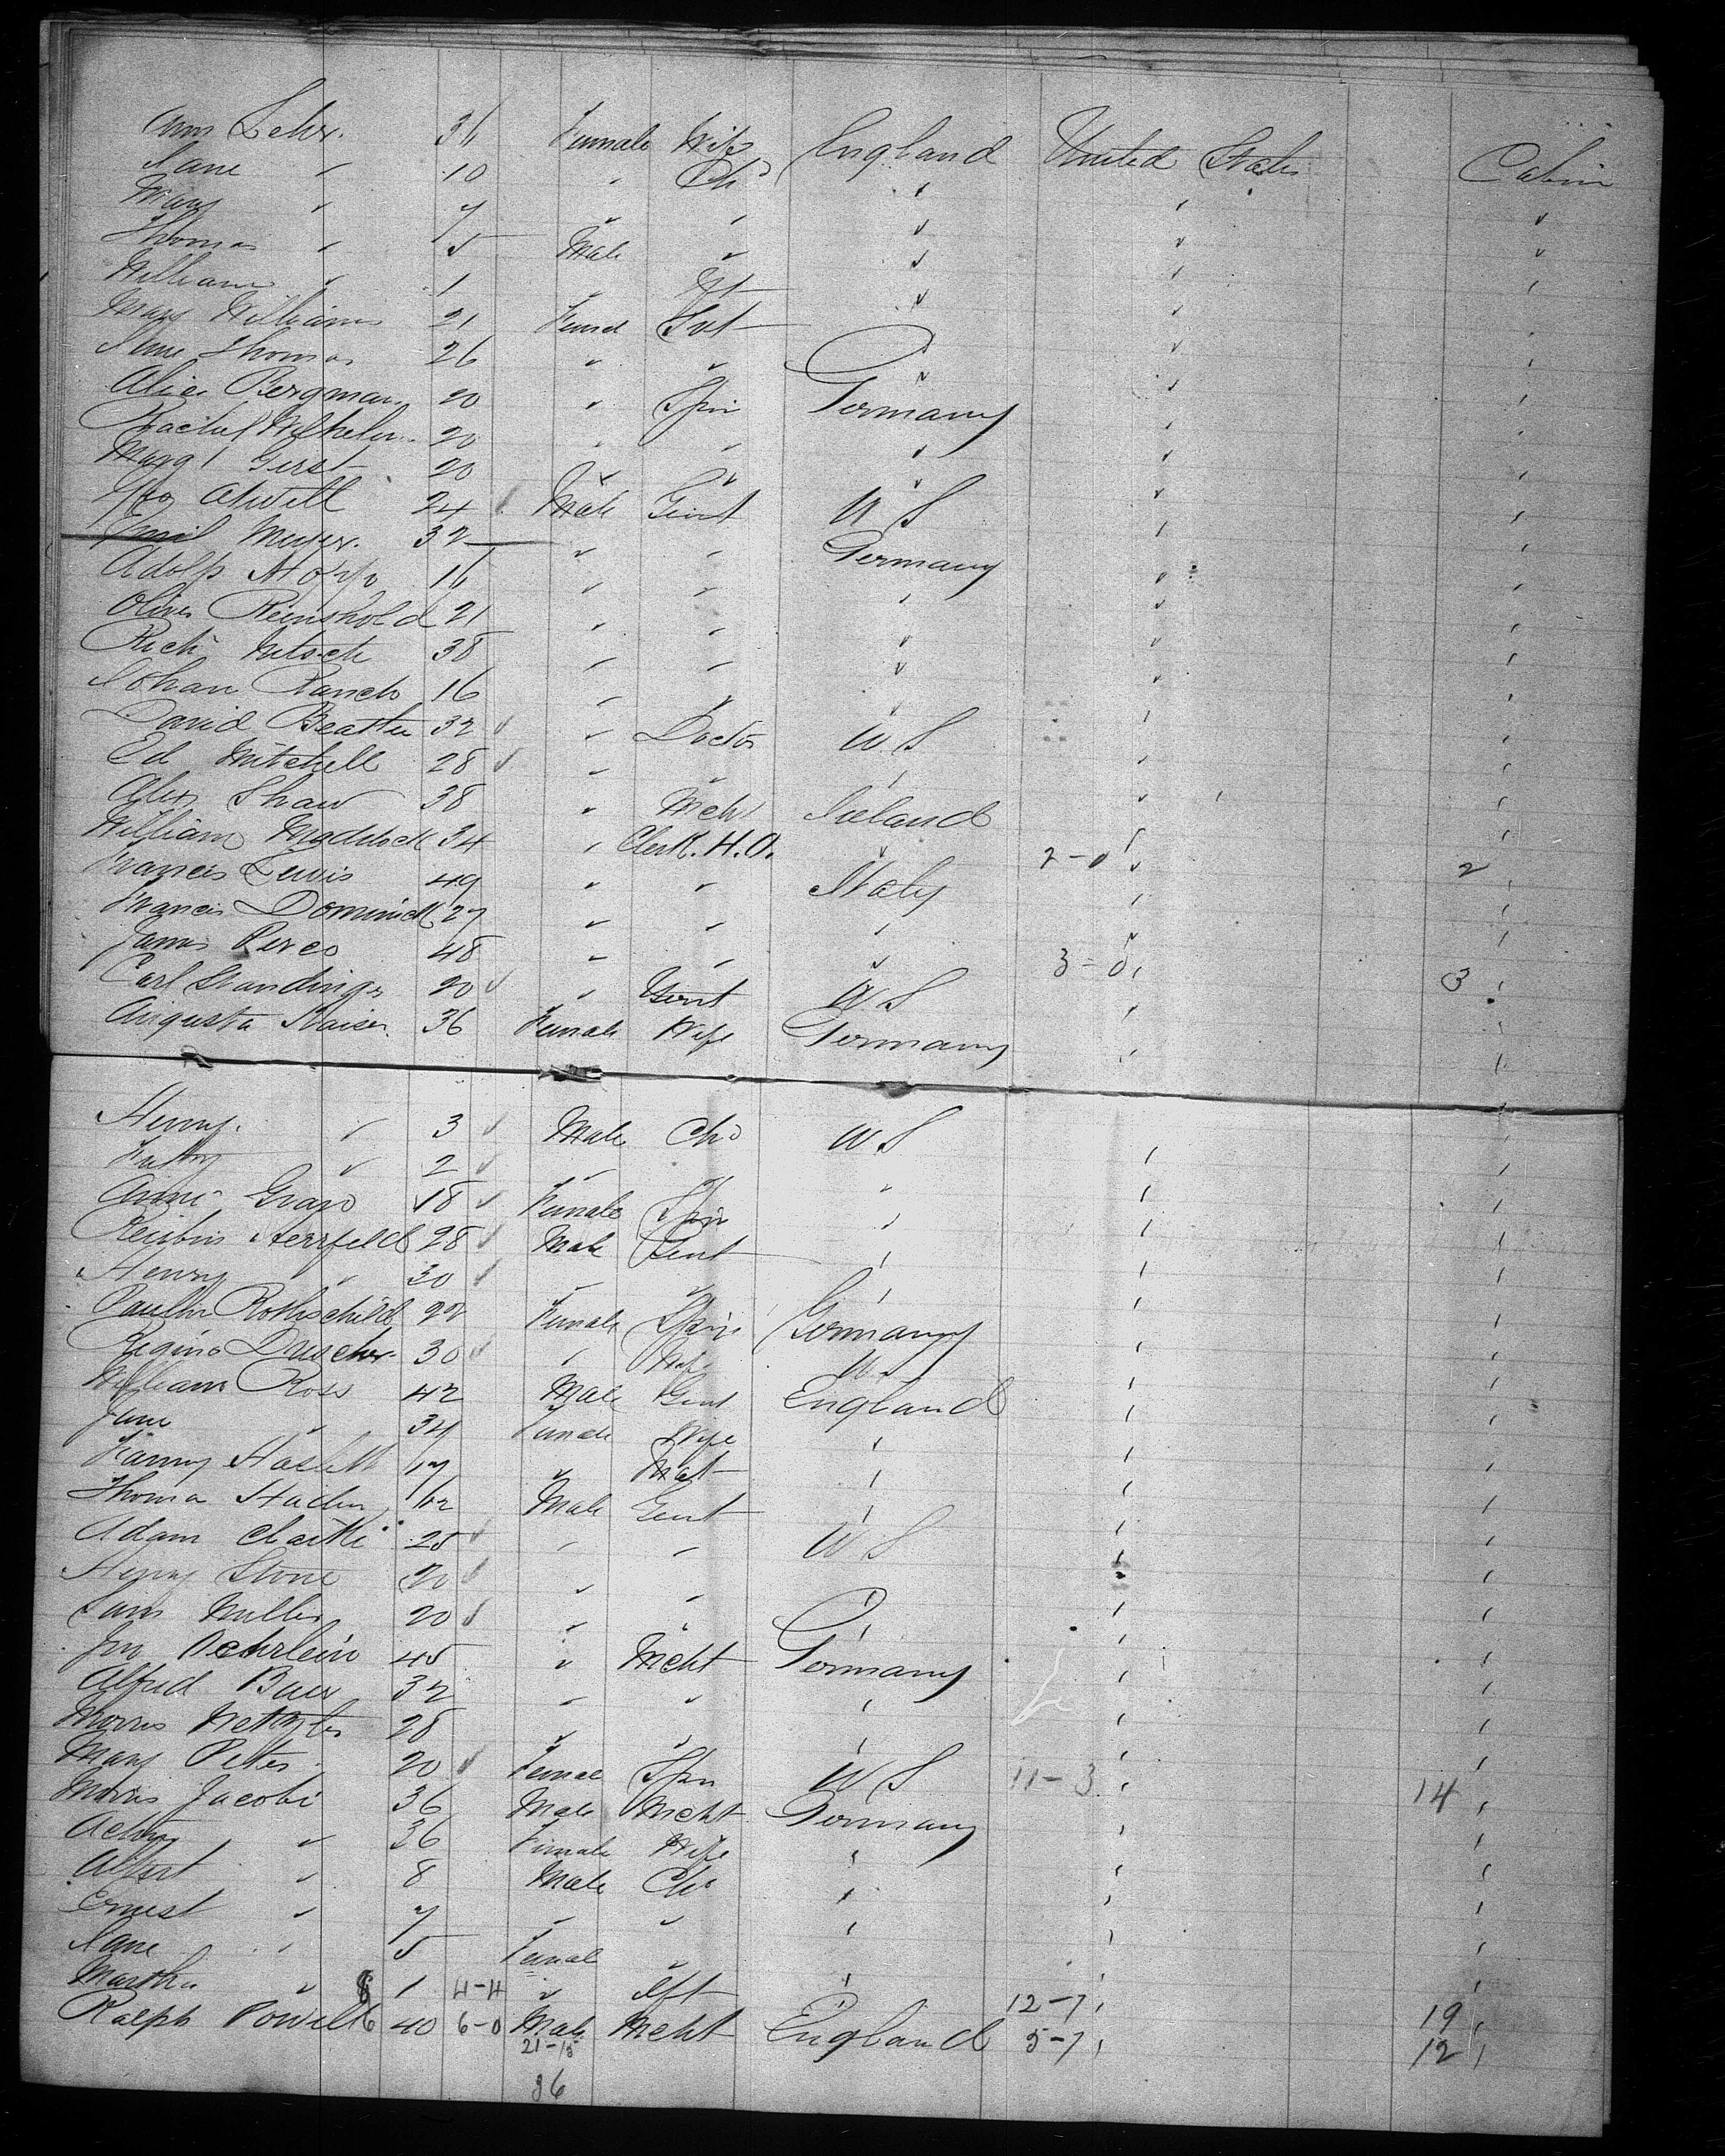 Ann Lehr. 36 Female Wife England United States Cabin
Jane " 10 " Chd " " "
Mary " 7 " " " " "
Thomas " 5 Male " " " "
William " 1 " Ift " " "
Mary Williams 21 Femal Svt " " "
Jane Thomas 26 " " " " "
Alice Bergman 20 " Spin Germany " "
Rachel Wilhelm 20 " " " " "
Margt Gerst 20 " " " " "
Geo Atwill 24 Male Gent U S " "
Emil Meyer. 32 " " Germany
Adolf 16 " " " " "
Oliver Reinshold 21 " " " " "
Richd Nitsch 38 " " " " "
Johan Ranch 16 " " " " "
David Beattie 32 " Doctor U S " "
Ed Mitchell 28 " " " " "
Alex Shaw 38 " Mch Ireland " "
William Maddock 34 " Clerk. H.O. " 2-0 " 2
Francis Lewis 49 " " Italy " "
Francis Dominick 27 " " " " "
James Perco 48 " " " 3-0 " 3
Carl Standinger 20 " Gent U S " "
Augusta Kaiser. 36 Female Wife Germany " "
Henry. " 3 Male Chd U S " "
" 2 " " " " "
Annie Grap 18 Female Spin " " "
Reubin Herrfeld 28 Male Gent " " "
Henry " 30 " " " " "
Paulin Rothschild 22 Female Spin Germany " "
Regina Drescher 30 " Wife U S " "
William Ross 42 Male Gent England " "
Jane " 34 Female Wife " " "
Fanny Haslett 17 " Mat " " "
Thoma 62 Male Gent " " "
Adam Clarke 25 " " U S " "
Henry Stone 20 " " " " "
Sam Miller 20 " " " " "
Jno Oehrlein 45 " Mcht Germany " "
Alfred Baer 32 " " " " "
Morris 28 " " " " "
Mary Peter 20 Female Spin U S 11-3 " 14
Morris Jacobi 36 Male Mcht Germany " "
" 36 Female Wife " " "
Albert " 8 Male Chd " " "
Ernest " 7 " " " " "
Jane " 5 Femal " " " "
Martha " 8 1 4-4 " Ift " 12-7 " 19
Ralph Powell 6 40 6-0 Male Mcht England 5-7 " 12
21-15
36